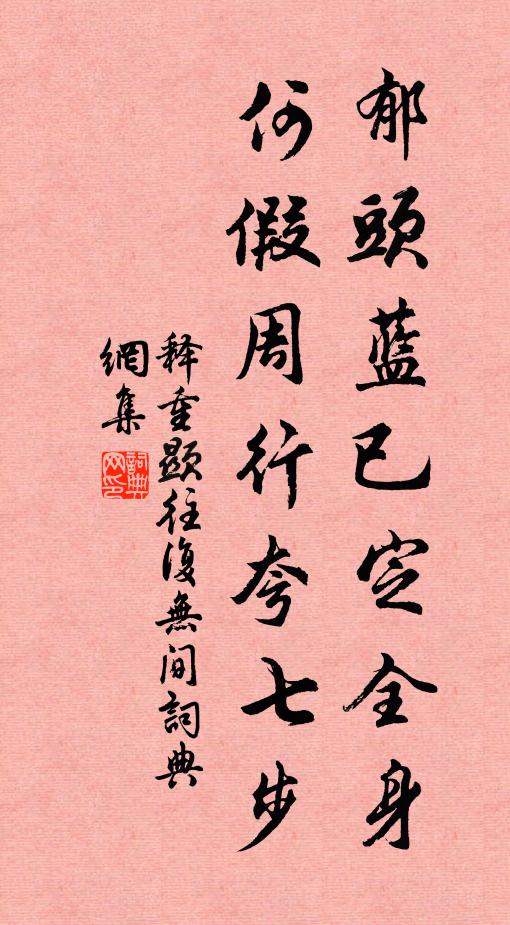 郁頭藍已定全身
何假周行夸七步
释重顯往復無間詞典
網集
詞典網印